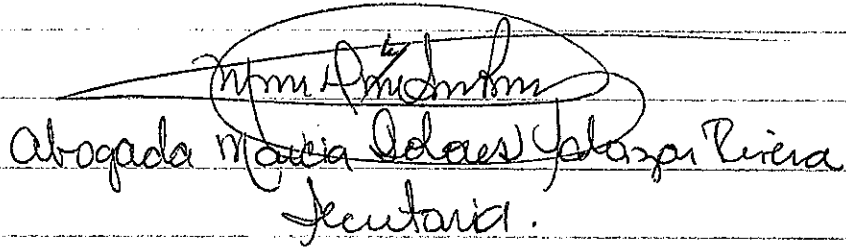 Abogada Marcia Dolores Salazar Rivera
Secretaria.